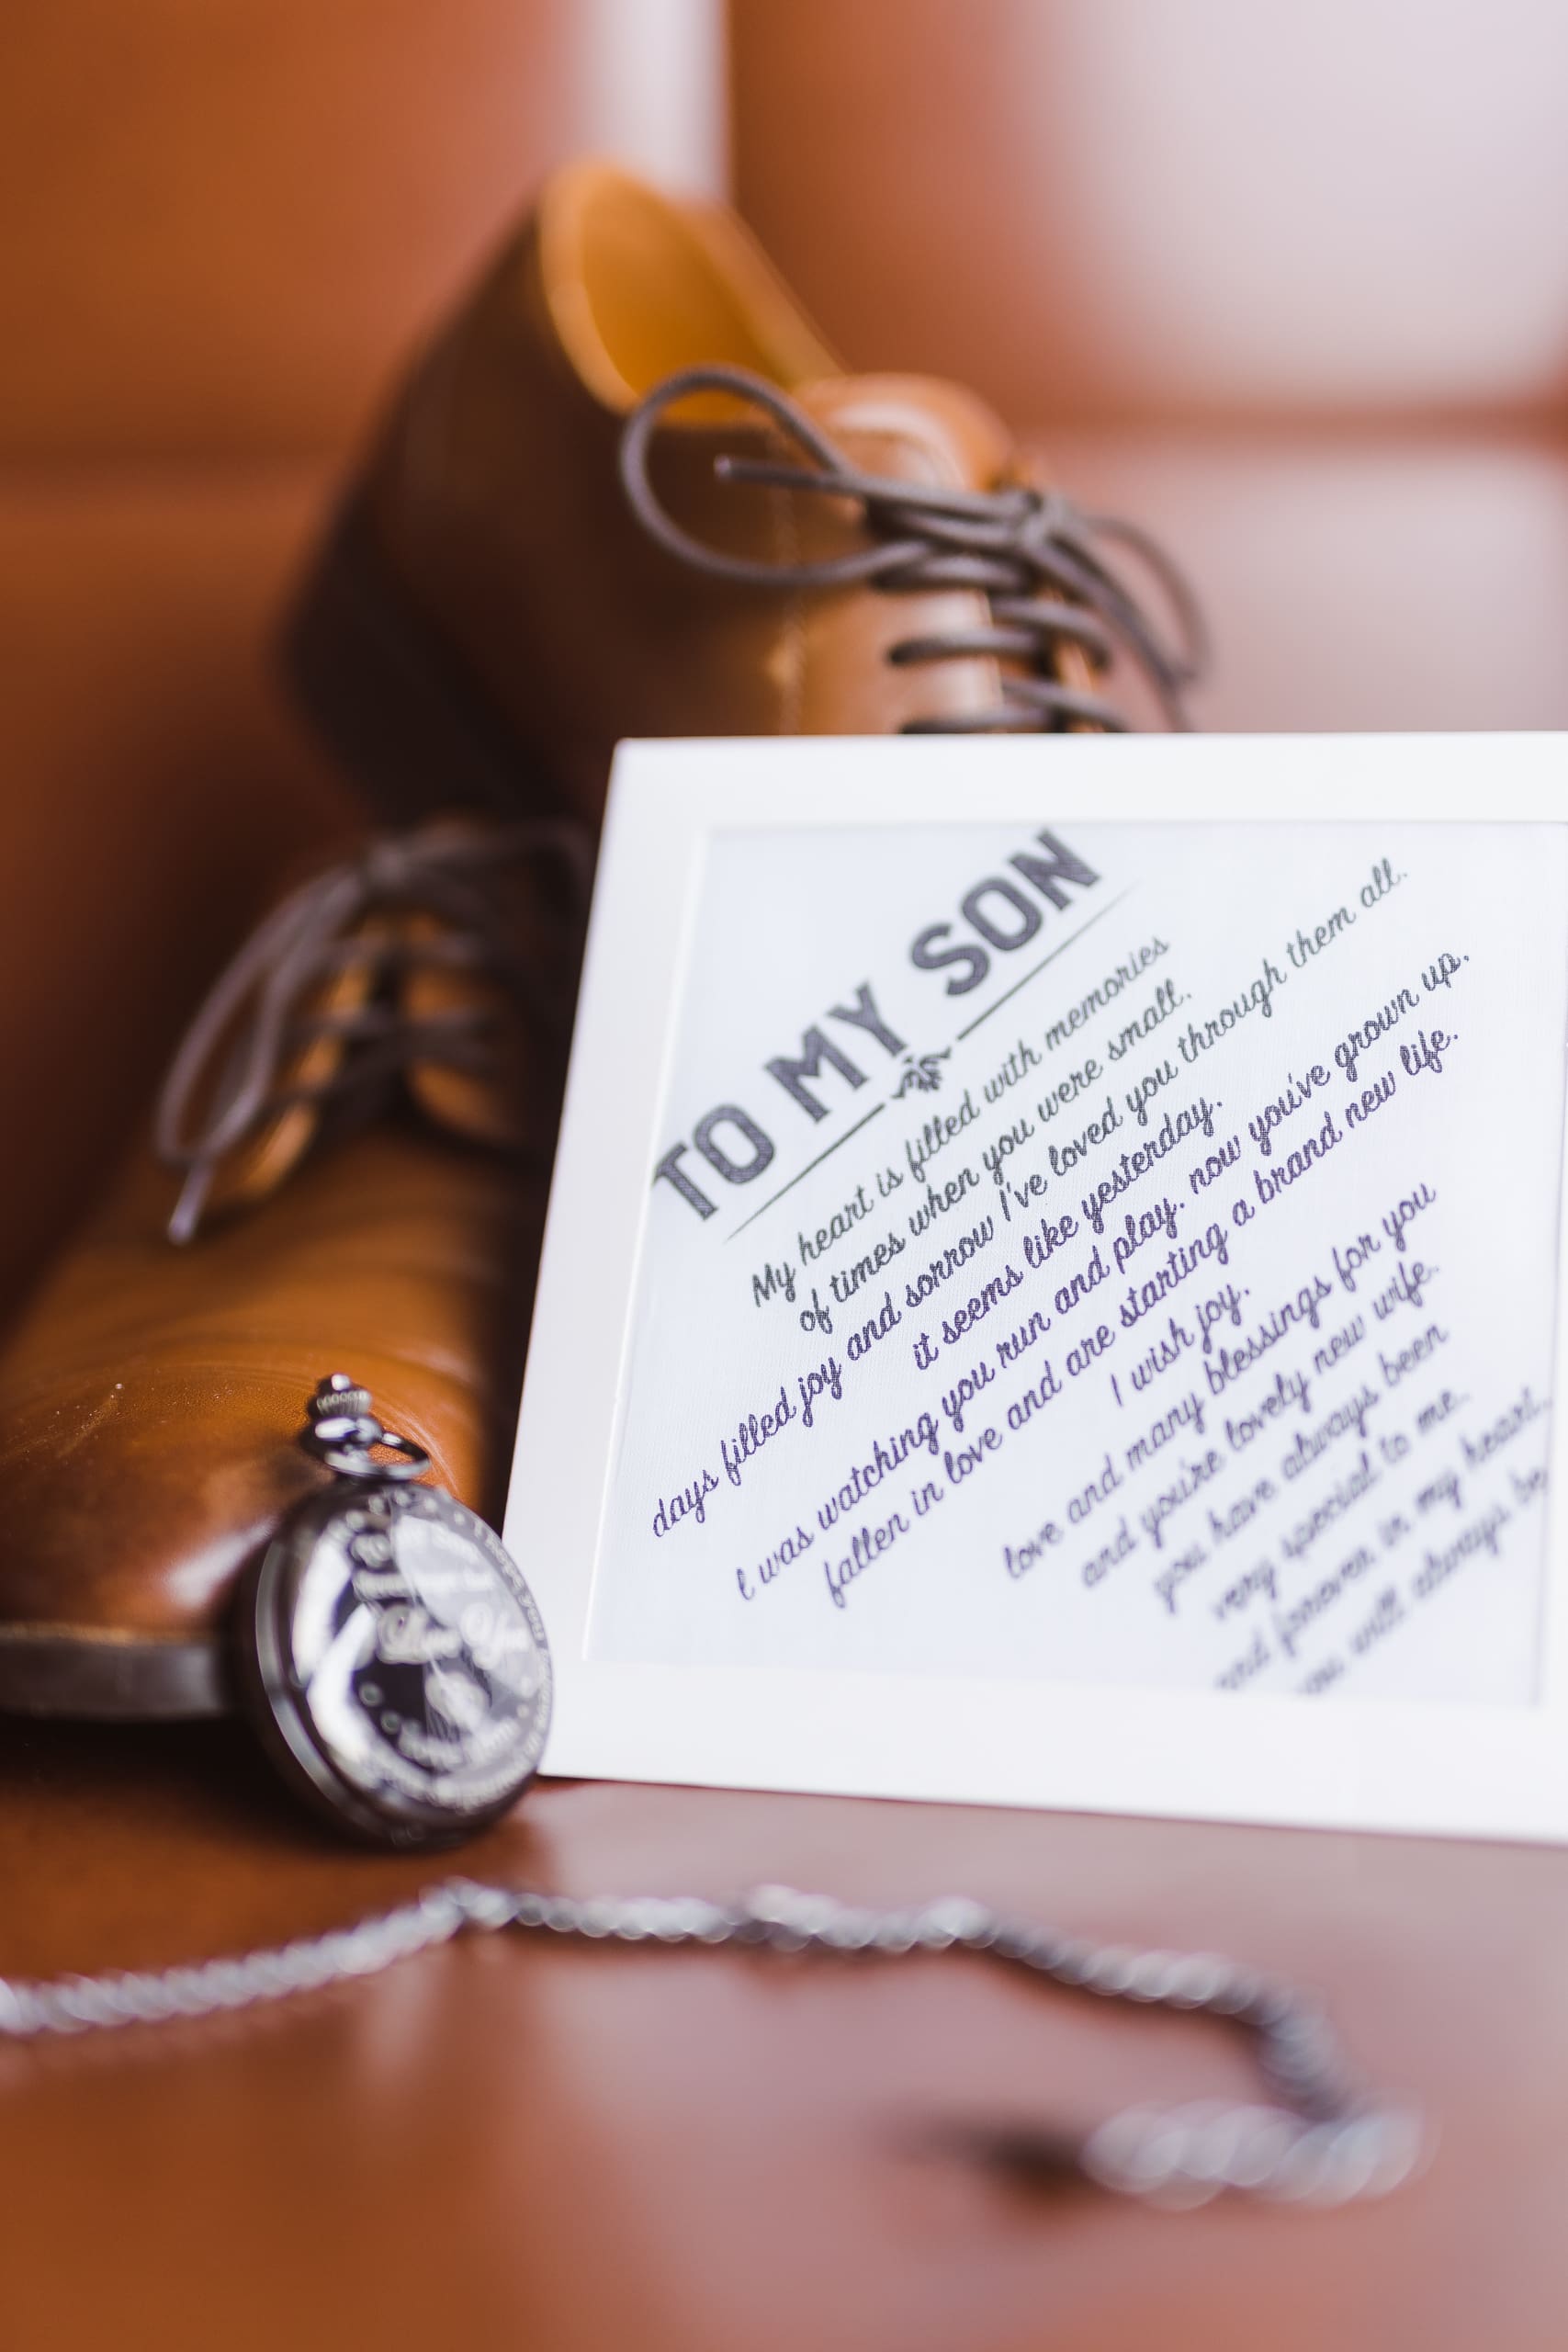 TO MY SON
My heart is filled with memories
of times when you were small.
days filled joy and sorrow I've loved you through them all.
it seems like yesterday.
I was watching you run and play. now you've grown up.
fallen in love and are starting a brand new life.
I wish joy.
love and many blessings for you
and you're lovely new wife.
you have always been
very special to me.
and forever in my heart.
you will always be
Love You